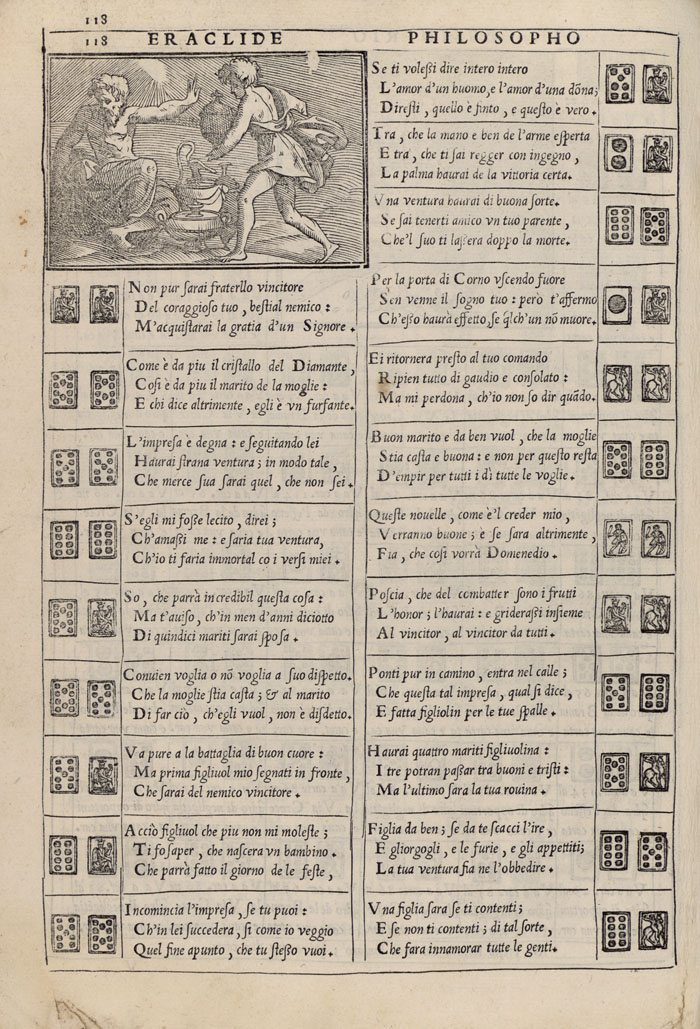 118
118 ERACLIDE PHILOSOPHO
Non pur sarai fraterllo vincitore
Del coraggioso tuo, bestial nemico:
M'acquistarai la gratia d'un Signore.
Come è da piu il cristallo del Diamante,
Cosi è da piu il marito de la moglie:
E chi dice altrimente, egli è vn furfante.
L'impresa è degna: e seguitando lei
Haurai strana ventura; in modo tale,
Che merce sua sarai quel, che non sei.
S'egli mi foße lecito, direi;
Ch'amaßi me: e saria tua ventura,
Ch'io ti faria immortal co i versi miei.
So, che parrà incredibil questa cosa:
Ma t'auiso, ch'in men d'anni diciotto
Di quindici mariti sarai sposa.
Conuien voglia o nõ voglia a suo dispetto.
Che la moglie stia casta; & al marito
Di far cio, ch'egli vuol, non è disdetto.
Va pure a la battaglia di buon cuore:
Ma prima figliuol mio segnati in fronte,
Che sarai del nemico vincitore.
Acciò figliuol che piu non mi moleste;
Ti fo saper, che nascera vn bambino.
Che parrà fatto il giorno de le feste,
Incomincia l'impresa, se tu puoi:
Ch'in lei succedera, si come io veggio
Quel fine apunto, che tu steßo vuoi.
Se ti voleßi dire intero intero
L'amor d'un huomo, e l'amor d'una dõna;
Diresti, quello è finto, e questo è vero.
Tra, che la mano e ben de l'arme esperta
E tra, che ti sai regger con ingegno,
La palma haurai de la vittoria certa.
Vna ventura haurai di buona sorte.
Se sai tenerti amico vn tuo parente,
Che'l suo ti laßera doppo la morte.
Per la porta di Corno vscendo fuore
S'en venne il sogno tuo: però t'affermo
Ch'eßo haurà effetto, se q̃lch'un nõ muore.
Ei ritornera presto al tuo comando
Ripien tutto di gaudio e consolato:
Ma mi perdona, ch'io non so dir quãdo.
Buon marito e da ben vuol, che la moglie
Stia casta e buona: e non per questo resta
D'empir per tutti i dì tutte le voglie.
Queste nouelle, come è'l creder mio,
Verranno buone; e se sara altrimente,
Fia, che cosi vorrà Domenedio.
Poscia, che del combatter sono i frutti
L'honor; l'haurai: e grideraßi insieme
Al vincitor, al vincitor da tutti.
Ponti pur in camino, entra nel calle;
Che questa tal impresa, qual si dice,
E fatta figliolin per le tue spalle.
Haurai quattro mariti figliuolina:
I tre potran paßar tra buoni e tristi:
Ma l'ultimo sara la tua rouina.
Figlia da ben; se da te scacci l'ire,
E gliorgogli, e le furie, e gli appettiti;
La tua ventura fia ne l'obbedire.
Vna figlia sara se ti contenti;
E se non ti contenti; di tal sorte,
Che fara innamorar tutte le genti.